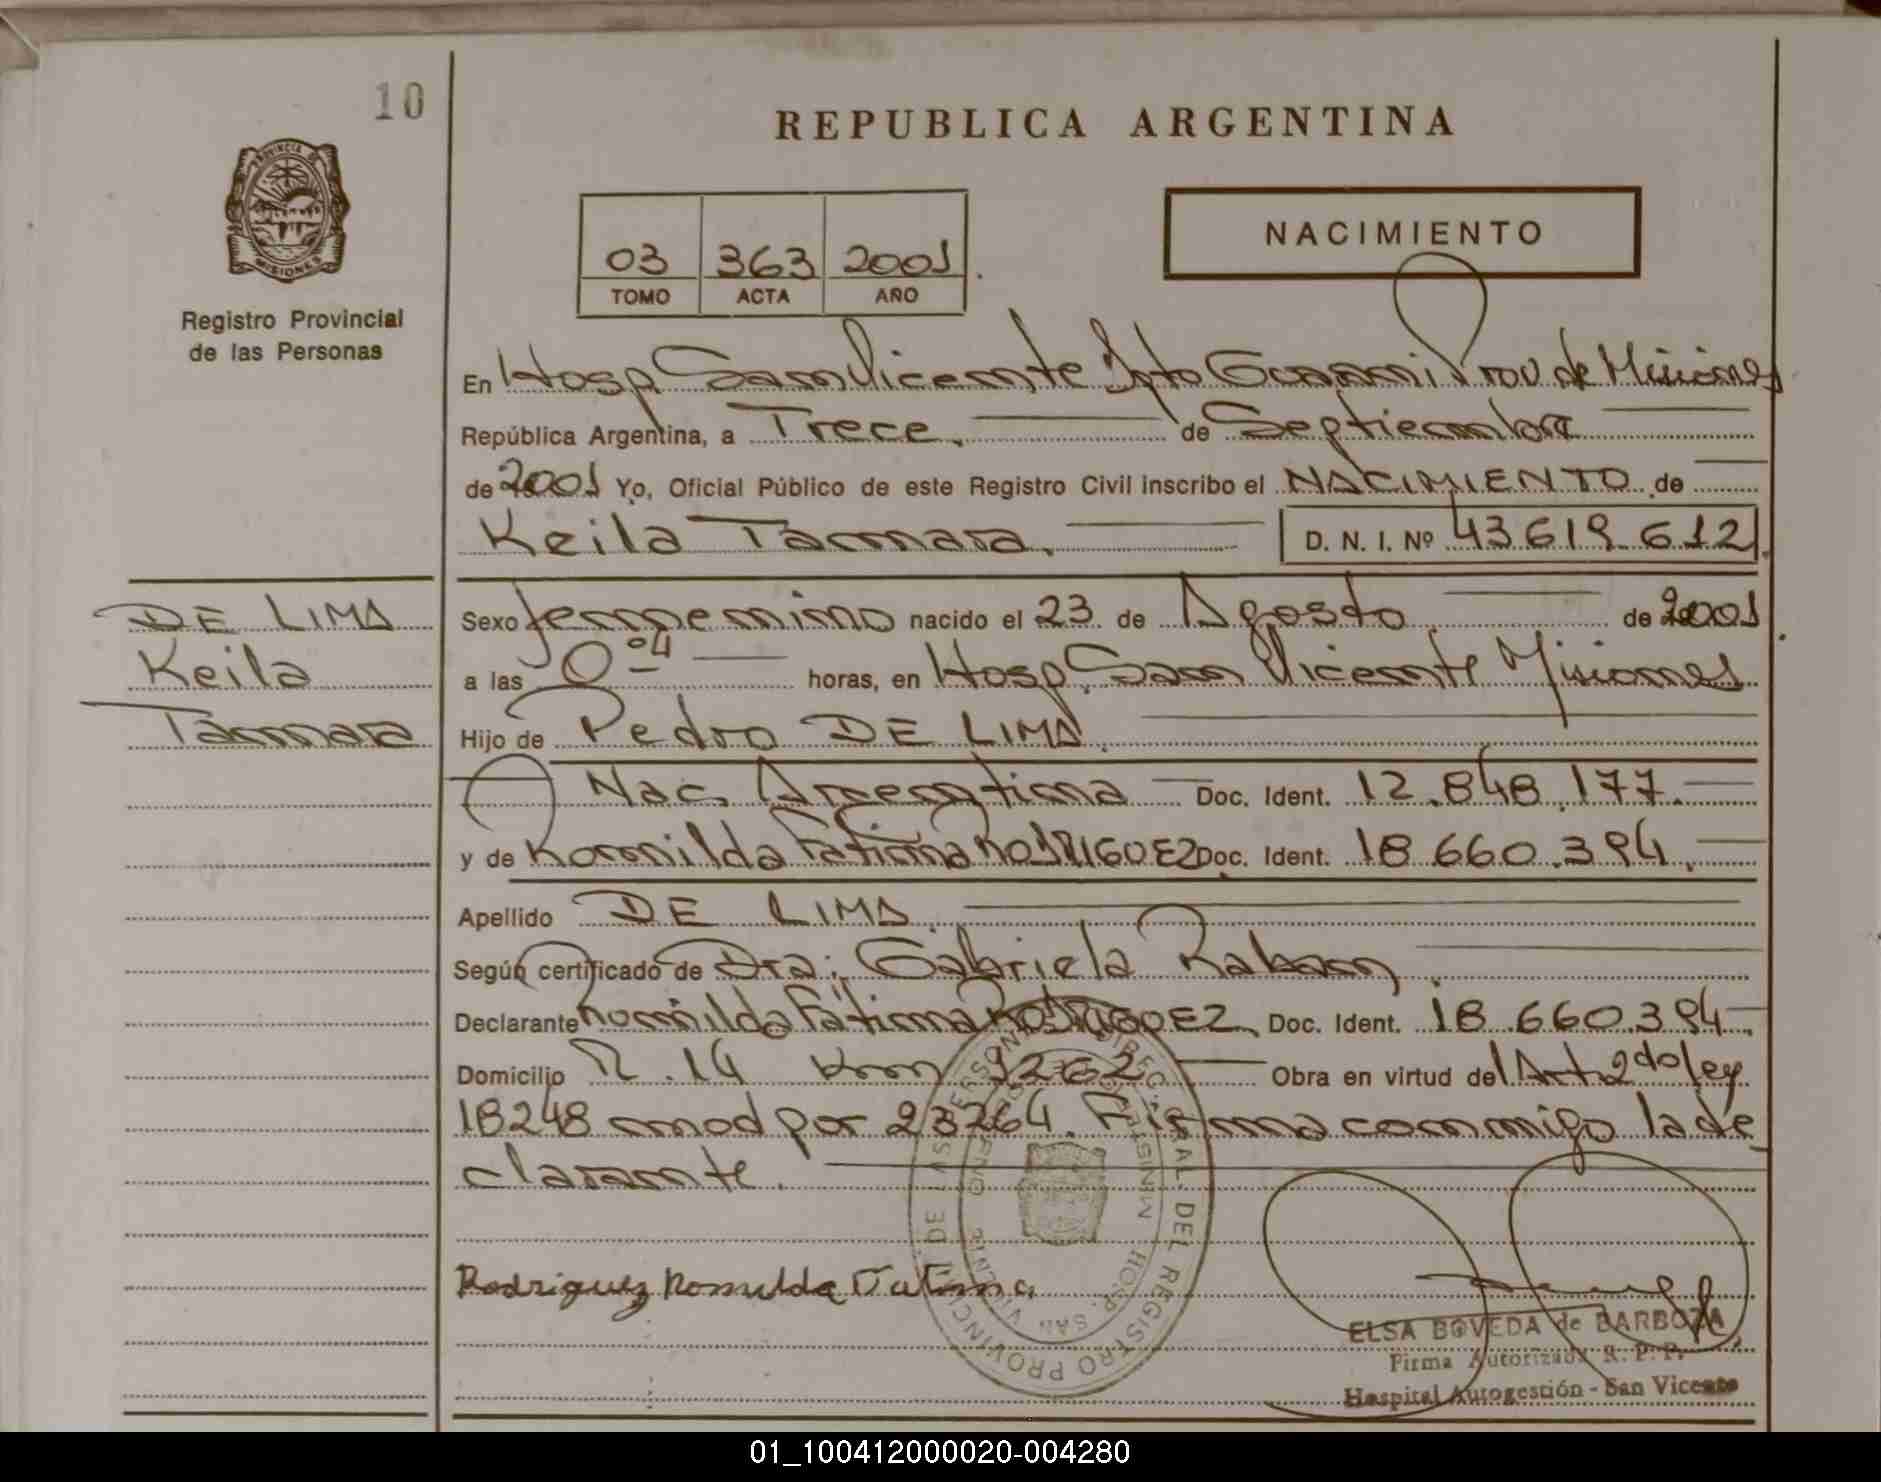 10
REPUBLICA ARGENTINA
PROVINCIA DE
MISIONES
Registro Provincial
de las Personas
03 363 2001
TOMO ACTA AÑO
NACIMIENTO
En Hosp San Vicente Dpto Guarani Prov de Misiones
República Argentina, a Trece. de Septiembre
de 2001 Yo, Oficial Público de este Registro Civil inscribo el NACIMIENTO de
Keila Tamara. D. N. I. Nº 43 619 612
DE LIMA
Keila
Tamara
Sexo femenino nacido el 23 de Agosto de 2001
a las 0 04 horas, en Hosp. San Vicente Misiones
Hijo de Pedro DE LIMA.
Nac. Argentina Doc. Ident. 12.848.177.
y de Romilda Fatima RODRIGUEZ Doc. Ident. 18 660.394.
Apellido DE LIMA.
Según certificado de Dra: Gabriela
Declarante Romilda Fátima RODRIGUEZ Doc. Ident. 18.660.394.
Domicilio R.14 Km Obra en virtud del Art 2do ley
18248 mod por 23264. Firma conmigo la de
clarante.
Rodriguez Romilda Fatima
DIREC. GRAL DEL REGISTRO PROVINCIAL DE LAS PERSONAS
HOSP. SAN VICENTE
ELSA BOVEDA de BARBOZA
Firma Autorizada R. P. P.
Hospital Autogestión - San Vicente
01_100412000020-004280